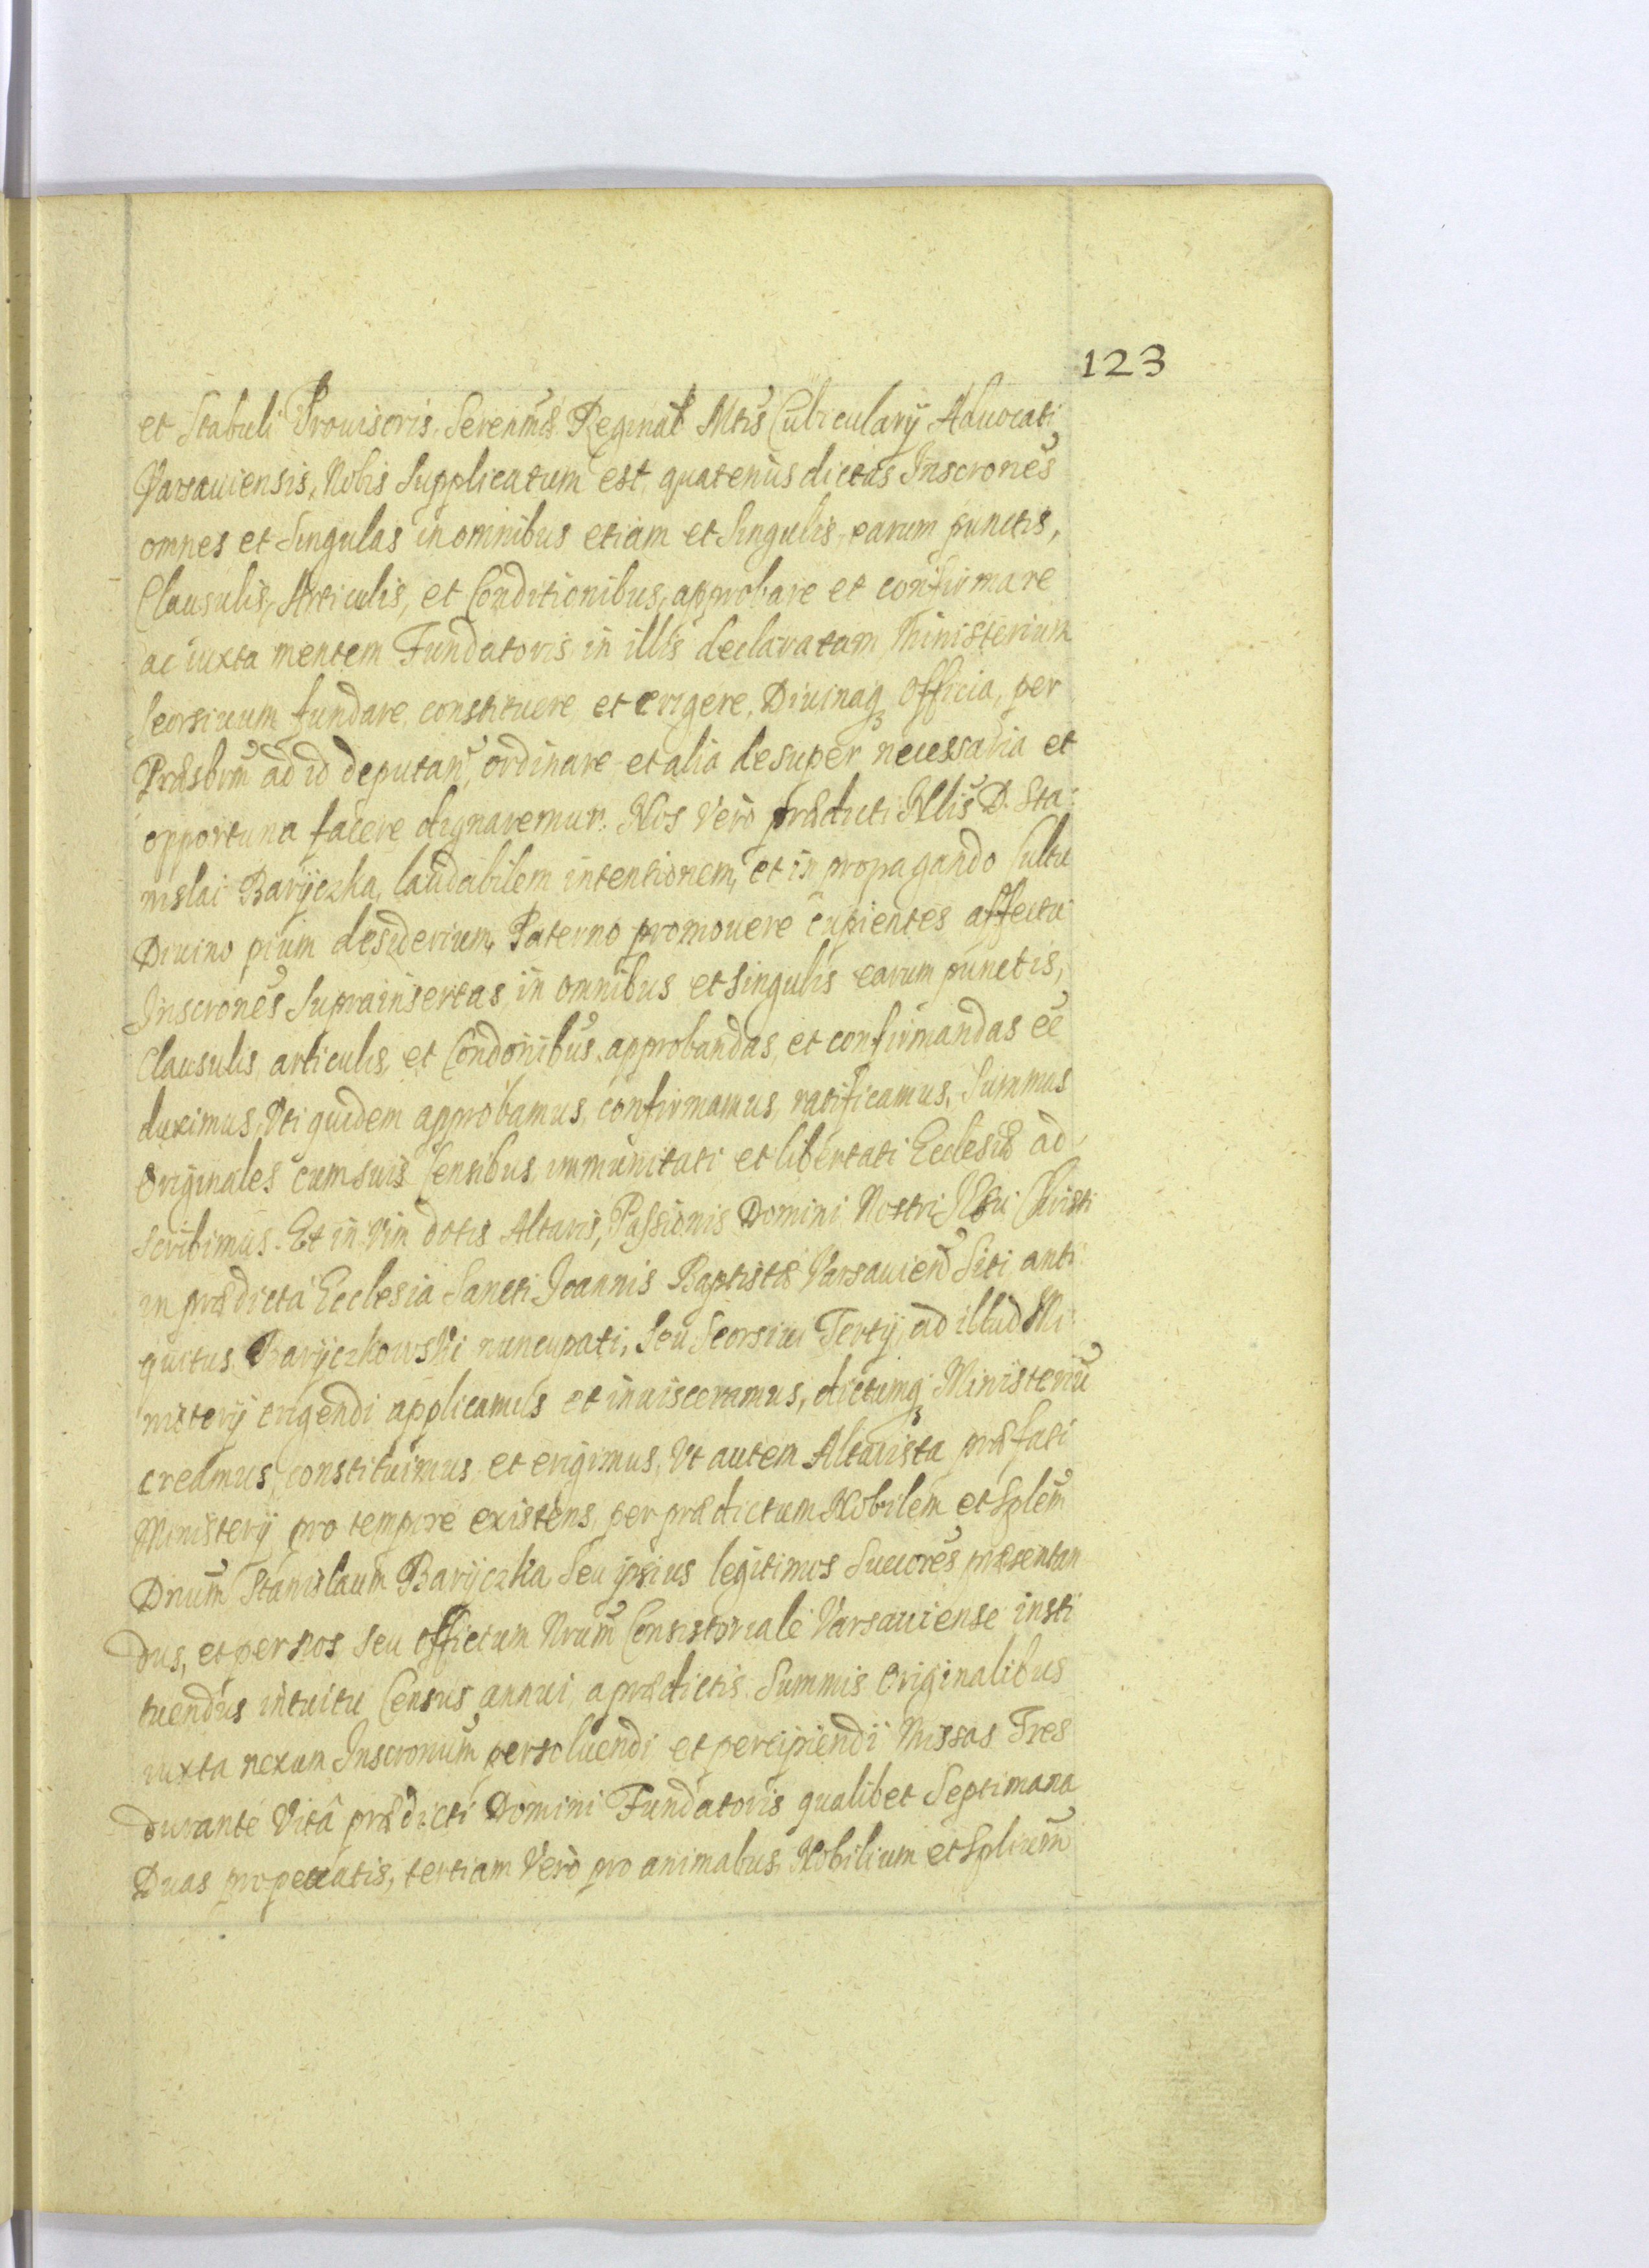 123
et Stabuli Prouisoris. Serenmæ Reginal Mtis Cubiculary Aduocati
Varsauiensis, Nobis Supplicatum est, quatenus dictas Inscrones
omnes et Singulas in omnibus etiam et Singulis earum punctis,
Clausulis, Articulis, et Conditionibus, approbare et confirmare
ac iuxta mentem Fundatoris in illis declaratam Ministerium
Seorsiuum fundare, constituere, et erigere, Diuinaq3 Officia, per
Præsbrm ad id deputan, ordinare et alia desuper necessaria et
opportuna facere dignaremur. Nos Vero prædicti Nlis D. Sta:
nislai Baryczka, laudabilem intentionem, et in propagando Cultu
Diuino pium desiderium, Paterno promouere cupientes affectu
Inscrones Suprainsertas, in omnibus et singulis earum punctis,
Clausulis, articulis, et Condonibus approbandas, et confirmandas eē
duximus, Vti quidem approbamus, confirmamus, ratificamus, Summas
Originales cum suis Censibus, immunitati et libertati Ecclesiæ ad
scribimus. Et in vim dotis Altaris, Passionis Domini Nostri Jesu Christi
in prædicta Ecclesia Sancti Joannis Baptistæ Varsauien Siti anti
quitus Baryczkowski nuncupati, Seu Seorsiui Tertij, ad illud Mi:
nistery erigendi applicamus et inuisceramus, dictumq3 Ministeriū
creamus, constituimus et erigimus, Vt autem Altarista præfati
Ministery pro tempore existens, per prædictum Nobilem et Splem
Dnum Stanislaum Baryczka Seu ipsius legitimos Succores præsentan
dus, et per nos seu Officium Nrum Consistoriale Varsauiense insti
tuendus intuitu Census annui, a prædictis Summis Originalibus
iuxta nexum Inscronum persoluendi et percipiendi Missas Tres
durante Vitâ prædicti Domini Fundatoris qualibet Septimana
Duas pro peccatis, tertiam Vero pro animabus Nobilium et Splium